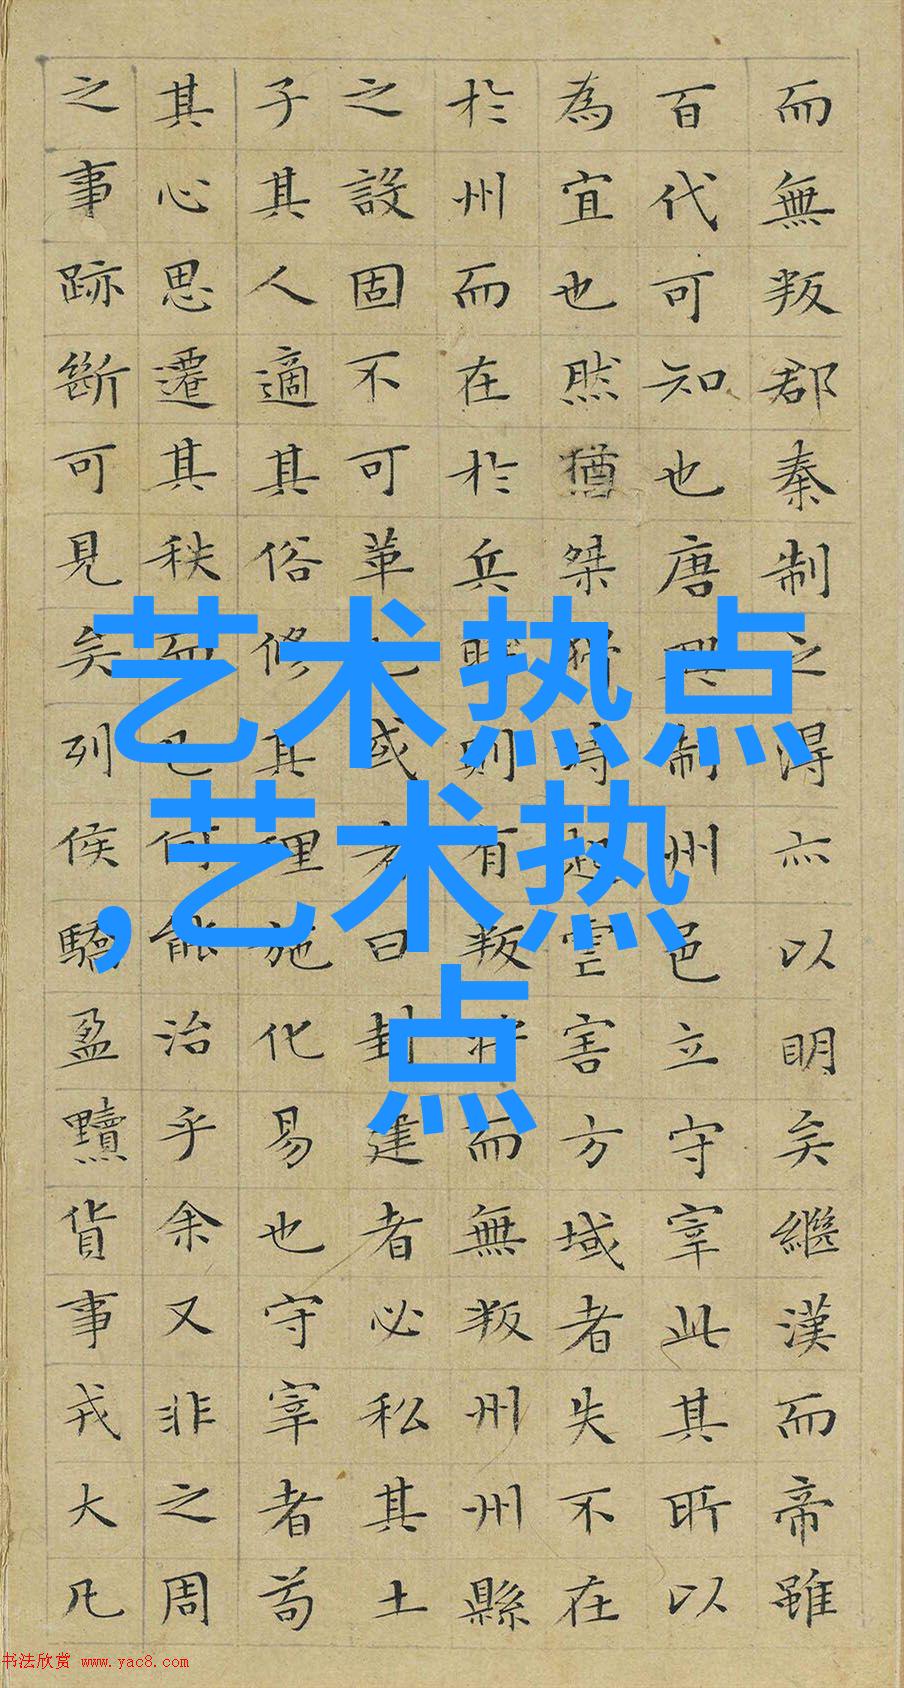 而無叛郡秦制之得亦以明矣繼漢而帝雖
百代可知也唐興制州邑立守宰此其所以
為宜也然猶桀猾時起虐害方域者失不在
於州而在於兵時則有叛將而無叛州州縣
之設固不可革也或者曰封建者必私其土
子其人適其俗修其理施化易也守宰者苟
其心思遷其秩而已何能治乎余又非之周
之事跡斷可見矣列侯驕盈黷貨事戎大凡
艺术热点
,艺术热
点
书法欣赏 www.yac8.com